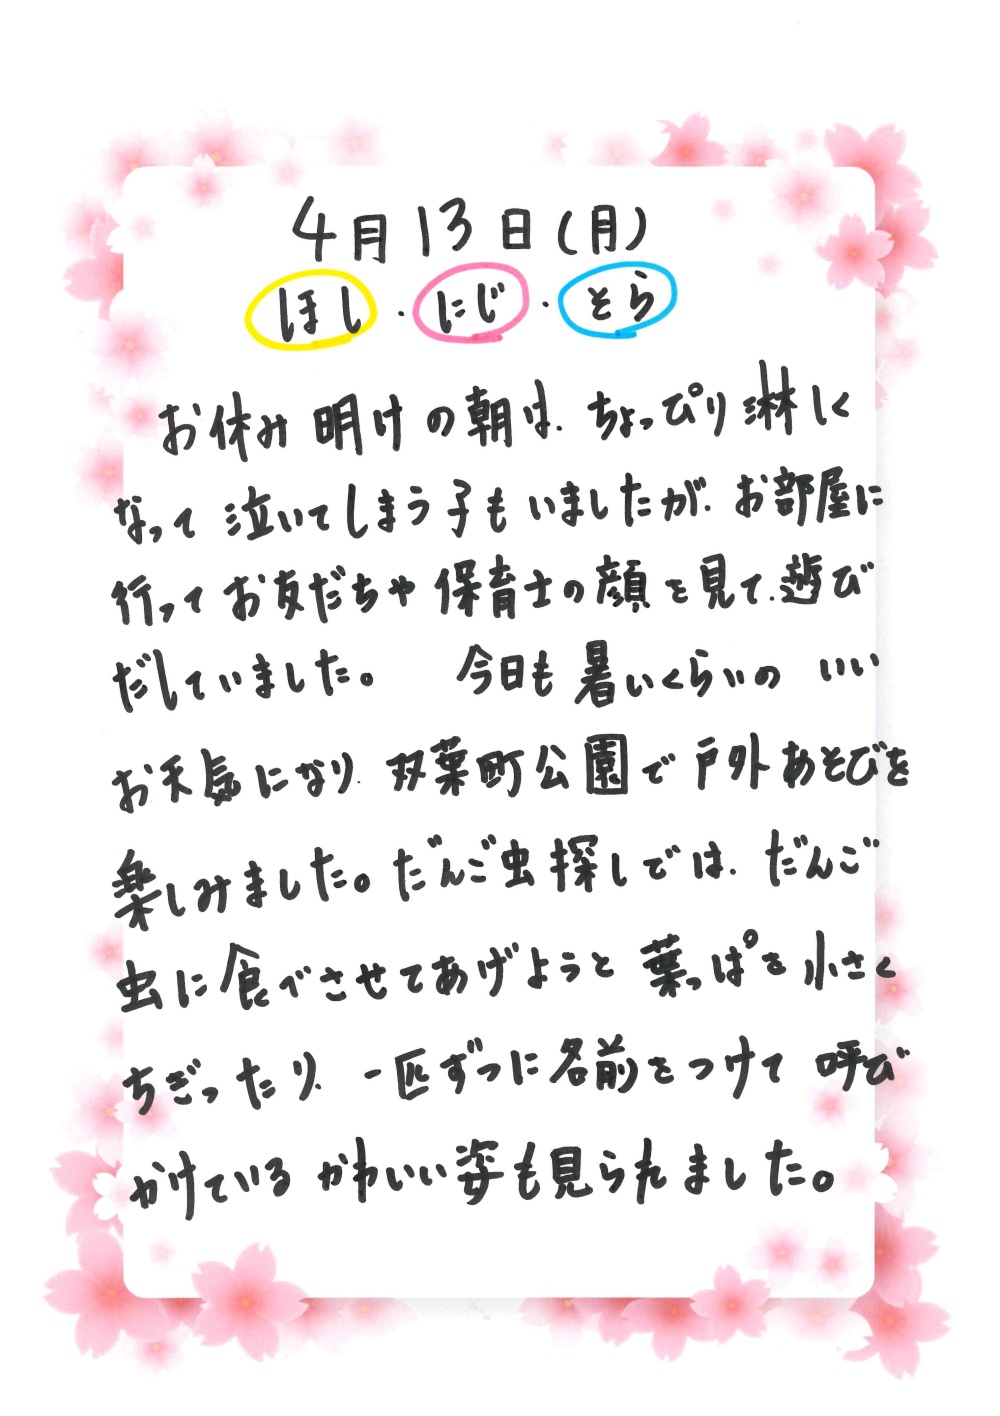 4月13日(月)
ほし・にじ・そら
お休み明けの朝は、ちょっぴり淋しく
なって泣いてしまう子もいましたが、お部屋に
行ってお友だちや保育士の顔を見て、遊び
だしていました。 今日も暑いくらいの いい
お天気になり、双葉町公園で戸外あそびを
楽しみました。だんご虫探しでは、だんご
虫に食べさせてあげようと葉っぱを小さく
ちぎったり、一匹ずつに名前をつけて呼び
かけているかわいい姿も見られました。